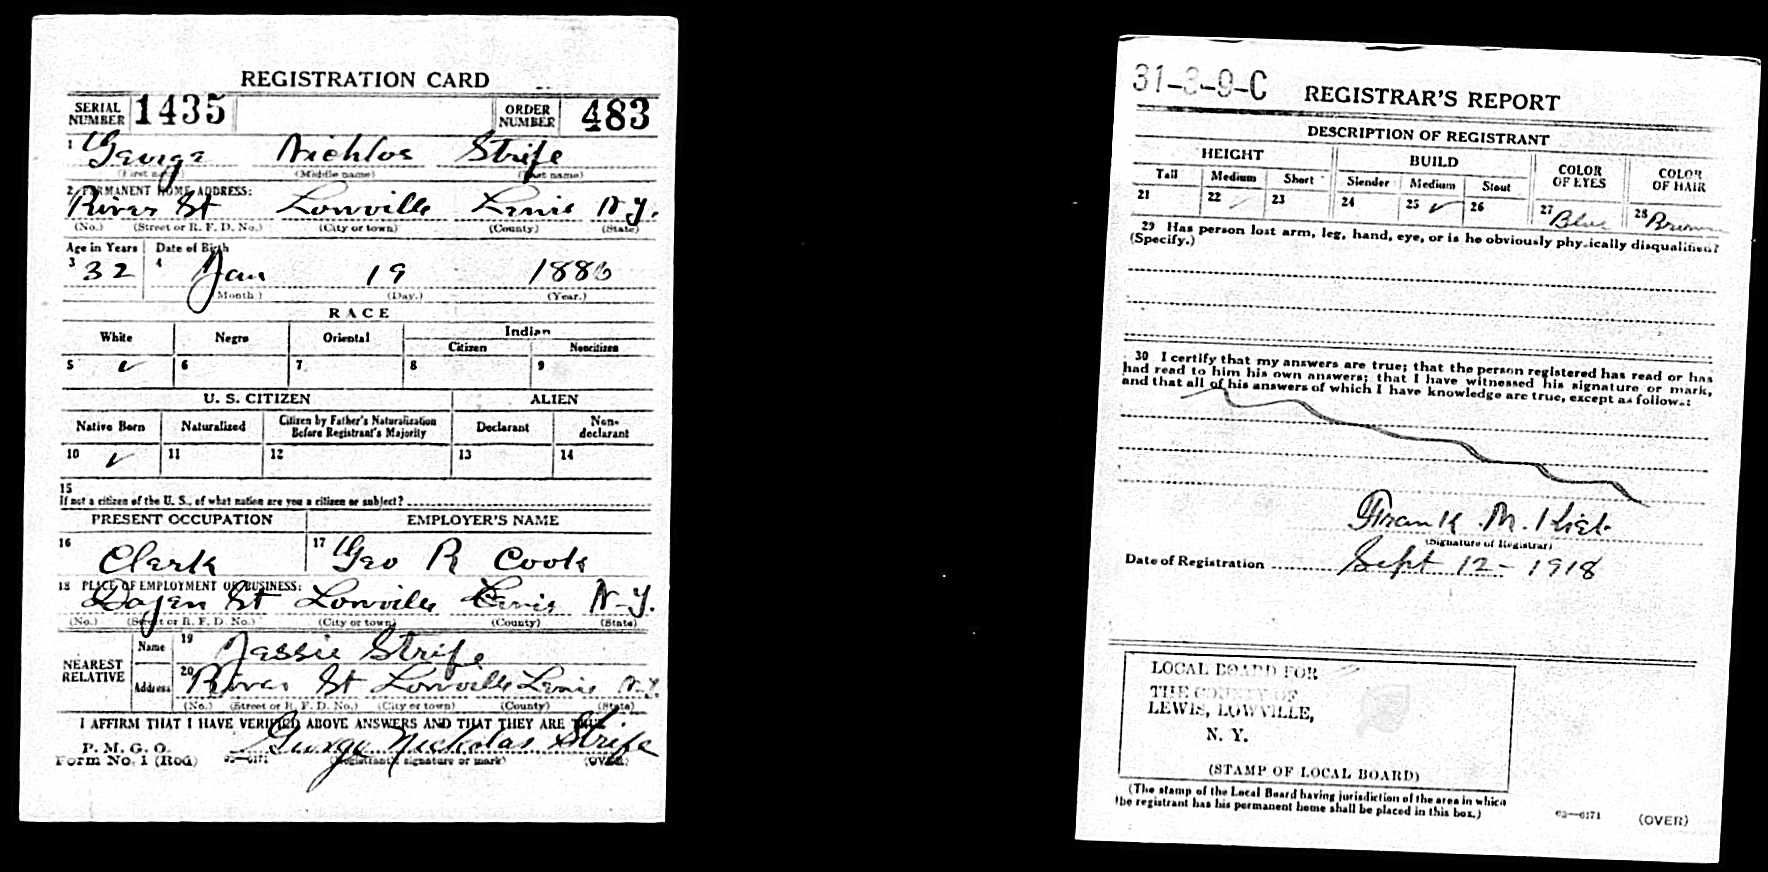 REGISTRATION CARD
SERIAL NUMBER 1435 ORDER NUMBER 483
1 George Nichlos Strife
(First name) (Middle name) (Last name)
2 PERMANENT HOME ADDRESS:
River St Lowville Lewis N.Y.
(No.) (Street or R. F. D. No.) (City or town) (County) (State)
Age in Years Date of Birth
3 32 4 Jan 19 1886
(Month) (Day.) (Year.)
RACE
White Negro Oriental Indian
Citizen Noncitizen
5 ✓ 6 7 8 9
U. S. CITIZEN ALIEN
Native Born Naturalized Citizen by Father's Naturalization Before Registrant's Majority Declarant Non-declarant
10 ✓ 11 12 13 14
15
If not a citizen of the U. S., of what nation are you a citizen or subject?
PRESENT OCCUPATION EMPLOYER'S NAME
16 Clerk 17 Geo R Cook
18 PLACE OF EMPLOYMENT OR BUSINESS:
Dayan St Lowville Lewis N.Y.
(No.) (Street or R. F. D. No.) (City or town) (County) (State)
NEAREST RELATIVE
Name 19 Jessie Strife
Address 20 River St Lowville Lewis N.Y.
(No.) (Street or R. F. D. No.) (City or town) (County) (State)
I AFFIRM THAT I HAVE VERIFIED ABOVE ANSWERS AND THAT THEY ARE TRUE
P. M. G. O.
Form No. 1 (Red) 03—6171 George Nickolas Strife
(Registrant's signature or mark) (OVER)
31-3-9-C REGISTRAR'S REPORT
DESCRIPTION OF REGISTRANT
HEIGHT BUILD COLOR OF EYES COLOR OF HAIR
Tall Medium Short Slender Medium Stout
21 22 ✓ 23 24 25 ✓ 26 27 Blue 28 Brown
29 Has person lost arm, leg, hand, eye, or is he obviously physically disqualified?
(Specify.)
30 I certify that my answers are true; that the person registered has read or has
had read to him his own answers; that I have witnessed his signature or mark,
and that all of his answers of which I have knowledge are true, except as follows:
Frank M.
(Signature of Registrar)
Date of Registration Sept 12 - 1918
LOCAL BOARD FOR
THE COUNTY OF
LEWIS, LOWVILLE,
N. Y.
(STAMP OF LOCAL BOARD)
(The stamp of the Local Board having jurisdiction of the area in which
the registrant has his permanent home shall be placed in this box.)
03—6171 (OVER)